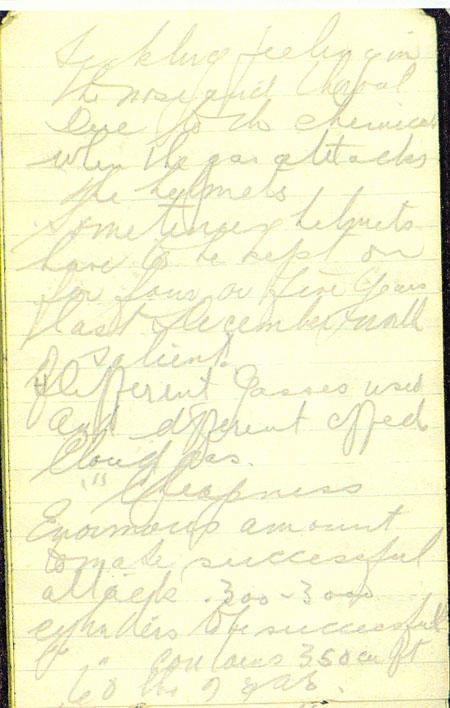 Tickling feeling in
the nose and throat
due to the chemical
when the gas attacks
the helmets
Sometimes helmets
have to be kept on
for four or five
last December north
of salient.
Different Gasses used
and different effects
Cloud gas.
" Cheapness
Enormous amount
to make successful
attack. 300-3000
cylinders to be successful
" contains 350 cu ft
60 lbs of gas.